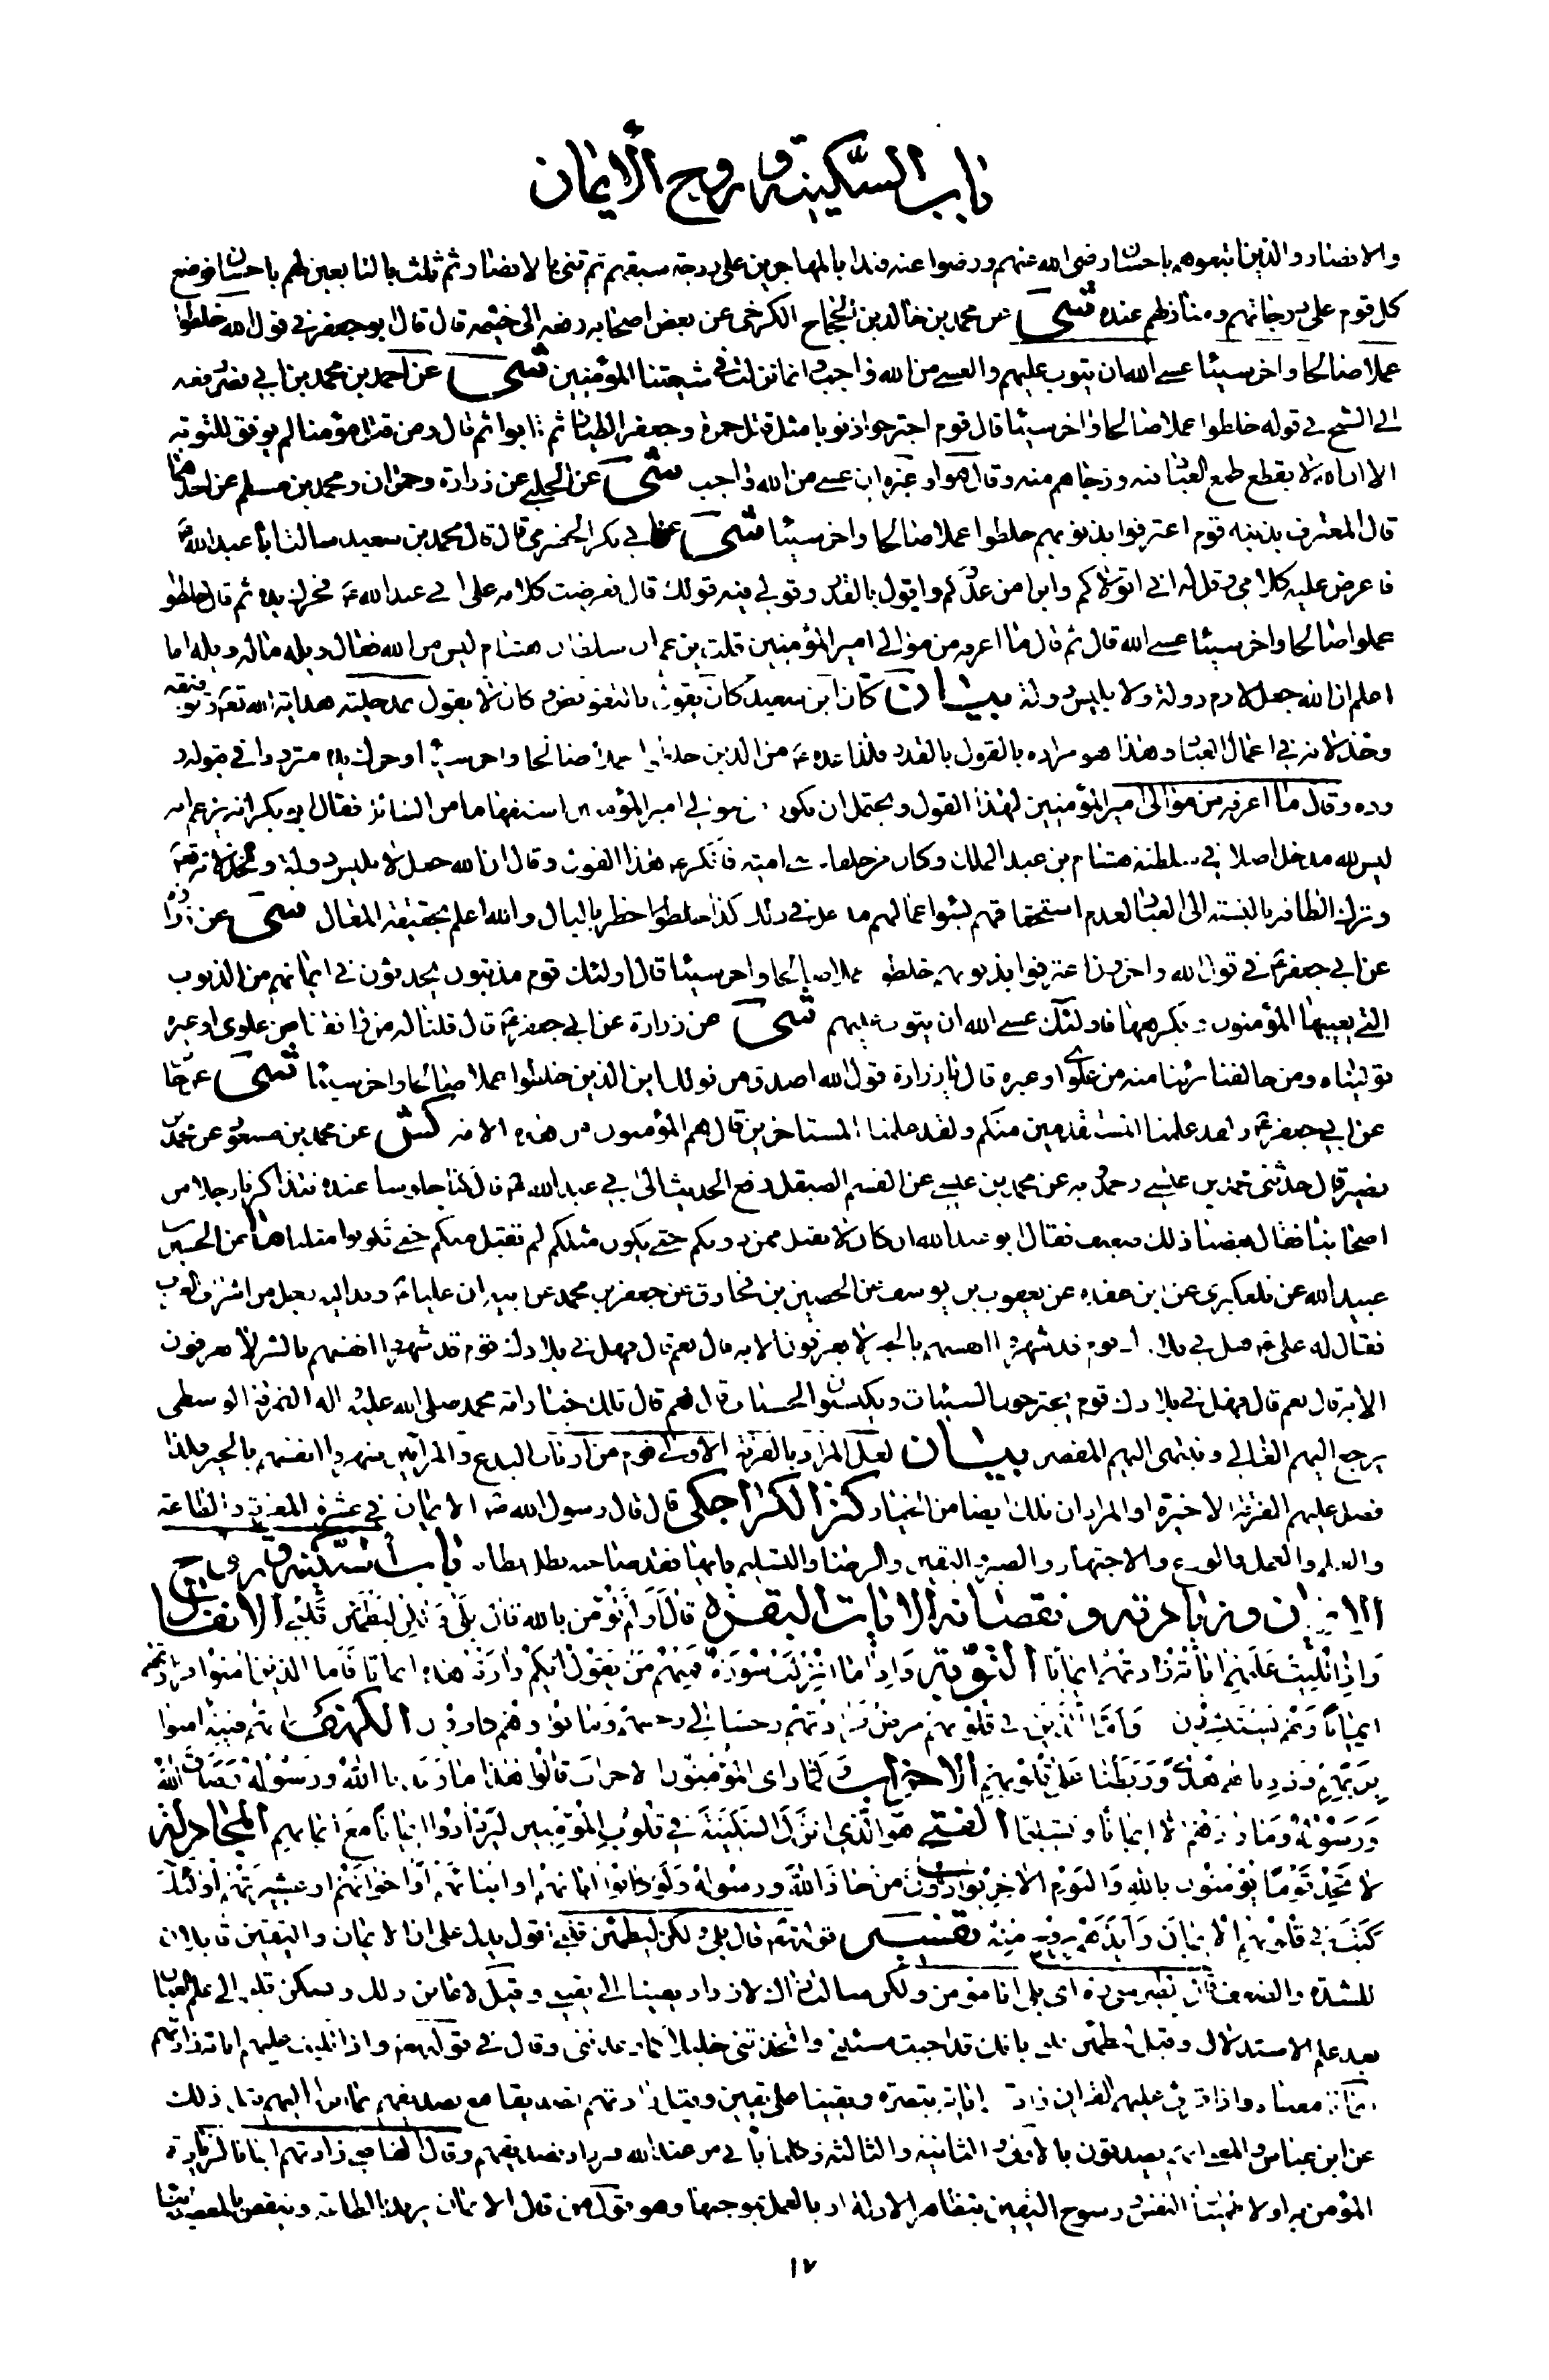 باب السكينة و روح الإيمان
والانصار والذين اتبعوهم باحسان رضى الله عنهم ورضوا عنه فبدا بالمهاجرين على درجة سبقهم ثم ثنى بالانصار ثم ثلث بالتابعين لهم باحسان فوضع
كل قوم على درجاتهم ومنازلهم عنده شى عن محمد بن خالد بن الحجاج الكرخى عن بعض اصحابه رفعه الى خيثمة قال قال ابو جعفر في قول الله خلطوا
عملا صالحا واخر سيئا عسى الله ان يتوب عليهم والعسى من الله واجب وانما نزلت في شيعتنا المؤمنين شى عن احمد بن محمد بن ابي نصر رفعه
الى الشيخ في قوله خلطوا عملا صالحا واخر سيئا قال قوم اجترحوا ذنوبا مثل قتل حمزة وجعفر الطيار ثم تابوا ثم قال ومن قتل مؤمنا لم يوفق للتوبة
الا ان الله لا يقطع طمع العباد فيه ورجاهم منه وقال هو او غيره ان عسى من الله واجب شى عن الحلبي عن زرارة وحمران ومحمد بن مسلم عن احدهما
قال المعترف بذنبه قوم اعترفوا بذنوبهم خلطوا عملا صالحا واخر سيئا شى عن ابي بكر الحضرمي قال قال محمد بن سعيد سالت ابا عبد الله
فاعرض عليه كلامي وقل له اني اتولاكم وابرا من عدوكم واقول بالقدر وقولي فيه قولك قال فعرضت كلامه على ابي عبد الله فحرك يده ثم قال خلطوا
عملا صالحا واخر سيئا عسى الله قال ثم قال ما اعرفه من موالي امير المؤمنين قلت يزعم ان سلطان هشام ليس من الله فقال ويله ما له ويله اما
اعلم ان الله جعل لادم دولة ولابليس دولة بيان كان ابن سعيد كان يقول بالتفويض و كان لا يقول بمدخلية هداية الله تعالى وتوفيقه
وخذلانه في اعمال العباد وهذا هو مراده بالقول بالقدر فلذا عده من الذين خلطوا عملا صالحا واخر سيئا وحرك يده مترددا في قبوله و
رده وقال ما اعرفه من موالي امير المؤمنين لهذا القول ويحتمل ان يكون استفهاما من السائل فقال ابو بكر انه يزعم انه
ليس لله مدخل اصلا في سلطنة هشام بن عبد الملك وكان من خلفاء بني امية فانكر هذا القول وقال ان الله جعل لابليس دولة
وترك الظافر بالنسبة الى العباد لعدم استحقاقهم لسوء اعمالهم كذا خطر بالبال والله اعلم بحقيقة المقال شى عن زرارة
عن ابي جعفر في قول الله واخرون اعترفوا بذنوبهم خلطوا عملا صالحا واخر سيئا قال اولئك قوم مذنبون يحدثون في ايمانهم من الذنوب
التي يعيبها المؤمنون و يكرهها فاولئك عسى الله ان يتوب عليهم شى عن زرارة عن ابي جعفر قال قلنا له من وافقنا من علوي او غيره
توليناه ومن خالفنا برئنا منه من علوي او غيره قال يا زرارة قول الله اصدق من قولك اين الذين خلطوا عملا صالحا واخر سيئا شى عن جابر
عن ابي جعفر ولقد علمنا المستقدمين منكم ولقد علمنا المستاخرين قال هم المؤمنون من هذه الامة كش عن محمد بن مسعود عن محمد بن
نصير قال حدثني محمد بن عيسى وحمدويه عن محمد بن عيسى عن القسم الصيقل رفع الحديث الى ابي عبد الله قال كنا جلوسا عنده فتذاكرنا رجلا من
اصحابنا فقال بعضنا ذلك ضعيف فقال ابو عبد الله ان كان لا يقبل ممن دونكم حتى يكون مثلكم لم تقبل منكم حتى تكونوا مثلنا ما عن الحسين بن
عبيد الله عن تلعكبري عن ابن عقدة عن يعقوب بن يوسف عن الحصين بن مخارق عن جعفر بن محمد عن ابيه ان عليا وفد اليه رجل من اشراف العرب
فقال له علي هل في بلادك قوم قد شهروا انفسهم بالخير لا يعرفون الا به قال نعم قال فهل في بلادك قوم قد شهروا انفسهم بالشر لا يعرفون
الا به قال نعم قال فهل في بلادك قوم يجترحون السيئات ويكتسبون الحسنات قال نعم قال تلك خيار امة محمد صلى الله عليه واله النمرقة الوسطى
يرجع اليهم الغالي وينتهى اليهم المقصر بيان لعل المراد بالفرقة الاولى قوم من ارباب البدع والمرائين شهروا انفسهم بالخير فلذا
فضل عليهم الفرقة الاخيرة او المراد ان تلك ايضا من الخيار كنز الكراجكي قال قال رسول الله الايمان في عشرة المعرفة والطاعة
والعلم والعمل والورع والاجتهاد والصبر واليقين والرضا والتسليم فايها فقد صاحبه بطل نظامه باب السكينة و روح
الايمان وزيادته ونقصانه الايات البقرة قال اولم تؤمن بالله قال بلى ولكن ليطمئن قلبي الانفال
واذا تليت عليهم اياته زادتهم ايمانا التوبة واذا ما انزلت سورة فمنهم من يقول ايكم زادته هذه ايمانا فاما الذين امنوا فزادتهم
ايمانا وهم يستبشرون واما الذين في قلوبهم مرض فزادتهم رجسا الى رجسهم وماتوا وهم كافرون الكهف انهم فتية امنوا
بربهم وزدناهم هدى وربطنا على قلوبهم الاحزاب ولما راى المؤمنون الاحزاب قالوا هذا ما وعدنا الله ورسوله وصدق الله
ورسوله وما زادهم الا ايمانا وتسليما الفتح هو الذي انزل السكينة في قلوب المؤمنين ليزدادوا ايمانا مع ايمانهم المجادلة
لا تجد قوما يؤمنون بالله واليوم الاخر يوادون من حاد الله ورسوله ولو كانوا اباءهم او ابناءهم او اخوانهم او عشيرتهم اولئك
كتب في قلوبهم الايمان وايدهم بروح منه تفسير قوله تعالى قال بلى ولكن ليطمئن قلبي اقول يدل على ان الايمان واليقين قابلان
للشدة والضعف اى بلى انا مؤمن ولكن سالت ذلك لازداد يقينا الى يقيني وقيل لاعاين ذلك ويسكن قلبي الى علم العيان
بعد علم الاستدلال وقيل ليطمئن قلبي بانك قد اجبت مسئلتي واتخذتني خليلا كما وعدتني وقال في قوله تعالى واذا تليت عليهم اياته زادتهم
ايمانا معناه واذا قرئ عليهم القران زادتهم اياته تبصرة ويقينا على يقين وقيل زادتهم تصديقا مع تصديقهم بما انزل اليهم قبل ذلك
عن ابن عباس والمعنى انهم يصدقون بالاولى والثانية والثالثة وكلما ياتي من عند الله فيزداد تصديقهم وقال القاضي زادتهم ايمانا لزيادة
المؤمن به او لاطمينان النفس ورسوخ اليقين بتظاهر الادلة او بالعمل بموجبها وهو قول من قال الايمان يزيد بالطاعة وينقص بالمعصية بناء
١٧